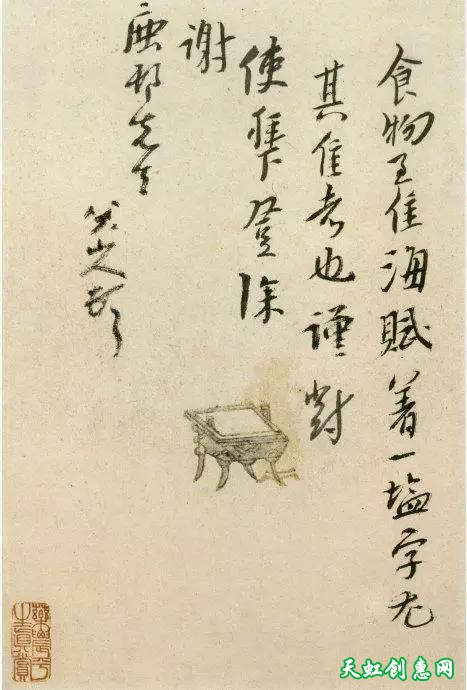 食物至佳海賦着一塩字尤
其佳者也謹對
使拜登除
謝
鹿邨先生
八大山人頓首
天虹创惠网